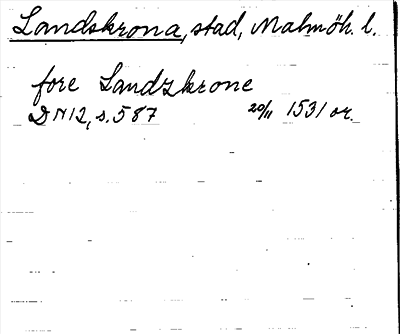 Landskrona, stad, Malmöh. l.
fore Landzkrone
DN 12, s. 587 20/11 1531 or.